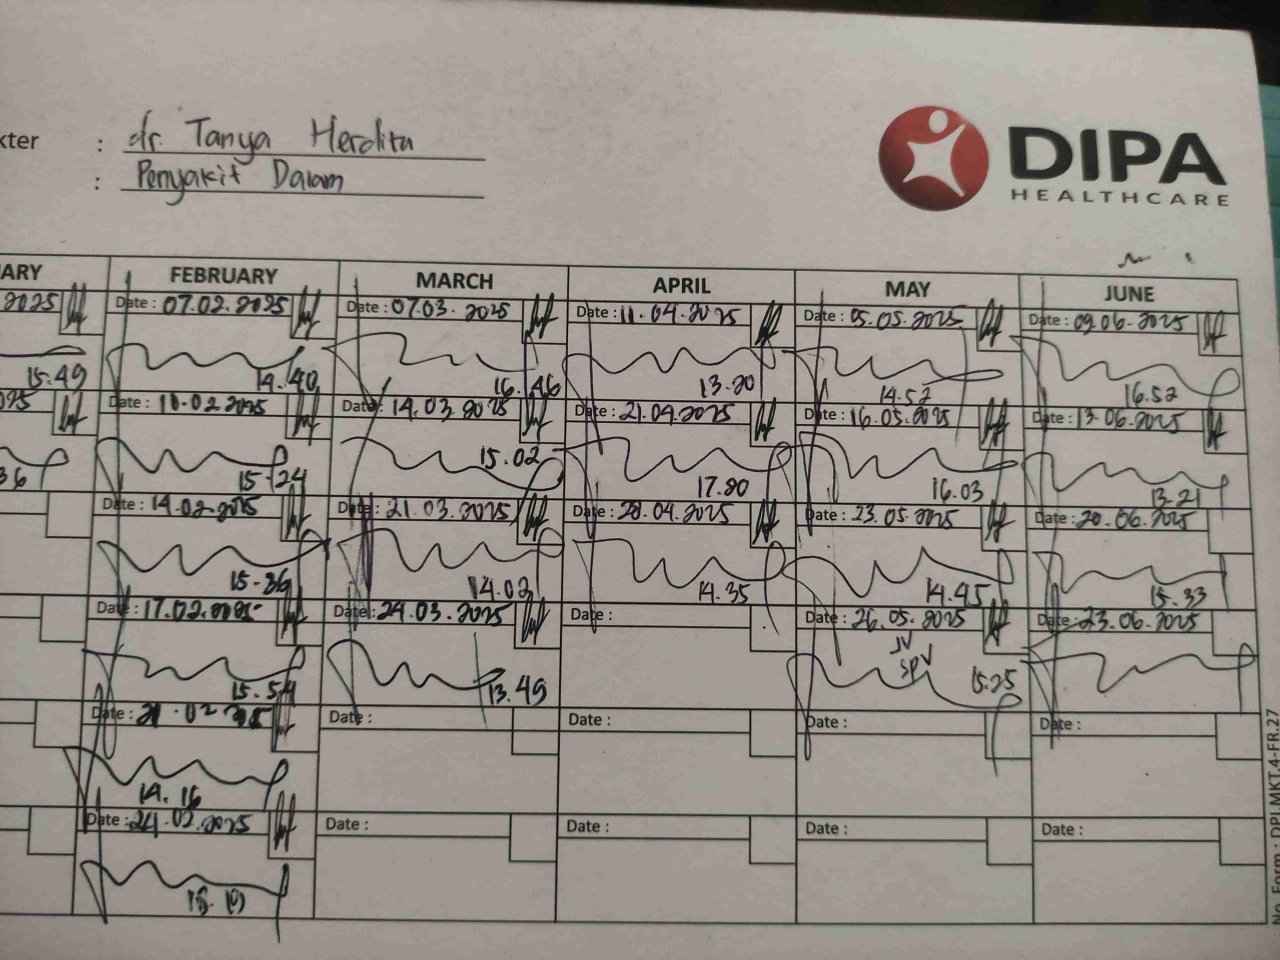 kter : dr. Tanya Herdita
: Penyakit Dalam
DIPA
HEALTHCARE
ARY FEBRUARY MARCH APRIL MAY JUNE
2025 Date : 07.02.2025 Date : 07.03.2025 Date : 11.04.2025 Date : 05.05.2025 Date : 09.06.2025
15.49 14.40 16.46 13.20 14.52 16.52
025 Date : 10.02.2025 Date : 14.03.2025 Date : 21.04.2025 Date : 16.05.2025 Date : 13.06.2025
36 15-24 15.02 17.20 16.03 13.21
Date : 14.02.2025 Date : 21.03.2025 Date : 28.04.2025 Date : 23.05.2025 Date : 20.06.2025
15-36 14.02 14.35 14.45 15.33
Date : 17.02.2025 Date : 24.03.2025 Date : Date : 26.05.2025 Date : 23.06.2025
JV
SPV
15.54 13.49 15.25
Date : 21.02.2025 Date : Date : Date : Date :
14.16
Date : 24.02.2025 Date : Date : Date : Date :
No. Form : DPI.MKT.4-FR.27